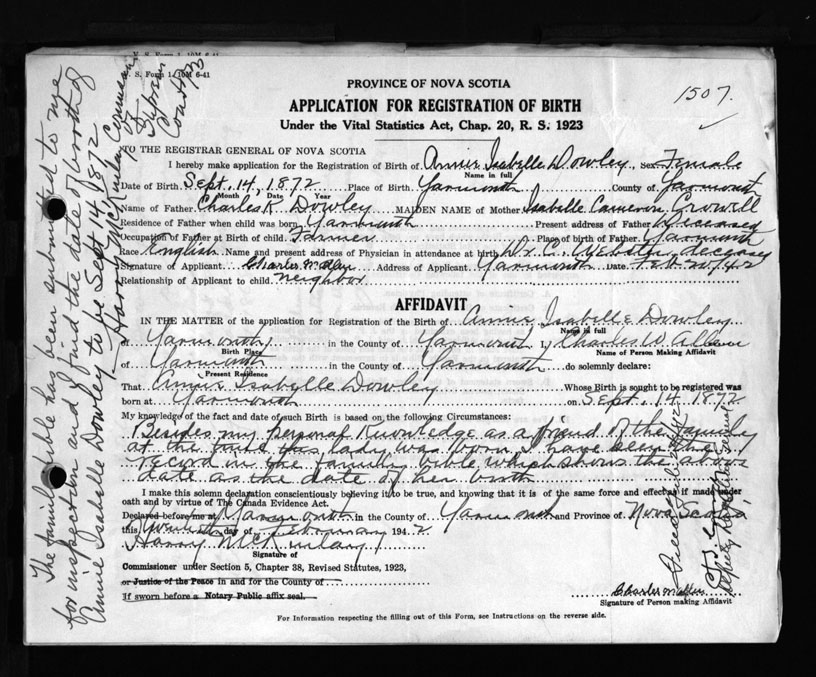 V. S. Form 1, 10M 6-41
1507.
PROVINCE OF NOVA SCOTIA
APPLICATION FOR REGISTRATION OF BIRTH
Under the Vital Statistics Act, Chap. 20, R. S. 1923
TO THE REGISTRAR GENERAL OF NOVA SCOTIA
I hereby make application for the Registration of Birth of Annie Isabelle Dowley, Sex Female
Name in full
Date of Birth Sept. 14, 1872 Place of Birth Yarmouth County of Yarmouth
Month Date Year
Name of Father Charles K. Dowley MAIDEN NAME of Mother Isabelle Cameron Crowell
Residence of Father when child was born Yarmouth Present address of Father Deceased
Occupation of Father at Birth of child Farmer Place of birth of Father Yarmouth
Race English Name and present address of Physician in attendance at birth Dr. C. Webster, deceased
Signature of Applicant Charles W Allen Address of Applicant Yarmouth Date Feb 20/42
Relationship of Applicant to child neighbor
AFFIDAVIT
IN THE MATTER of the application for Registration of the Birth of Annie Isabelle Dowley
Name in full
of Yarmouth in the County of Yarmouth I, Charles W. Allen
Birth Place Name of Person Making Affidavit
of Yarmouth in the County of Yarmouth do solemnly declare:
Present Residence
That Annie Isabelle Dowley Whose Birth is sought to be registered was
born at Yarmouth on Sept. 14 1872
My knowledge of the fact and date of such Birth is based on the following Circumstances:
Besides my personal knowledge as a friend of the family
at the time this lady was born I have seen the
record in the family bible which shows the above
date as the date of her birth
I make this solemn declaration conscientiously believing it to be true, and knowing that it is of the same force and effect as if made under
oath and by virtue of The Canada Evidence Act.
Declared before me at Yarmouth in the County of Yarmouth and Province of Nova Scotia,
this twentieth day of February 1942
Harry McKinlay
Signature of
Commissioner under Section 5, Chapter 38, Revised Statutes, 1923,
or Justice of the Peace in and for the County of
If sworn before a Notary Public affix seal.
Charles W Allen
Signature of Person making Affidavit
For Information respecting the filling out of this Form, see Instructions on the reverse side.
The family bible has been submitted to me
for inspection and I find the date of birth of
Annie Isabelle Dowley to be Sept 14 1872
Harry McKinlay Commissioner